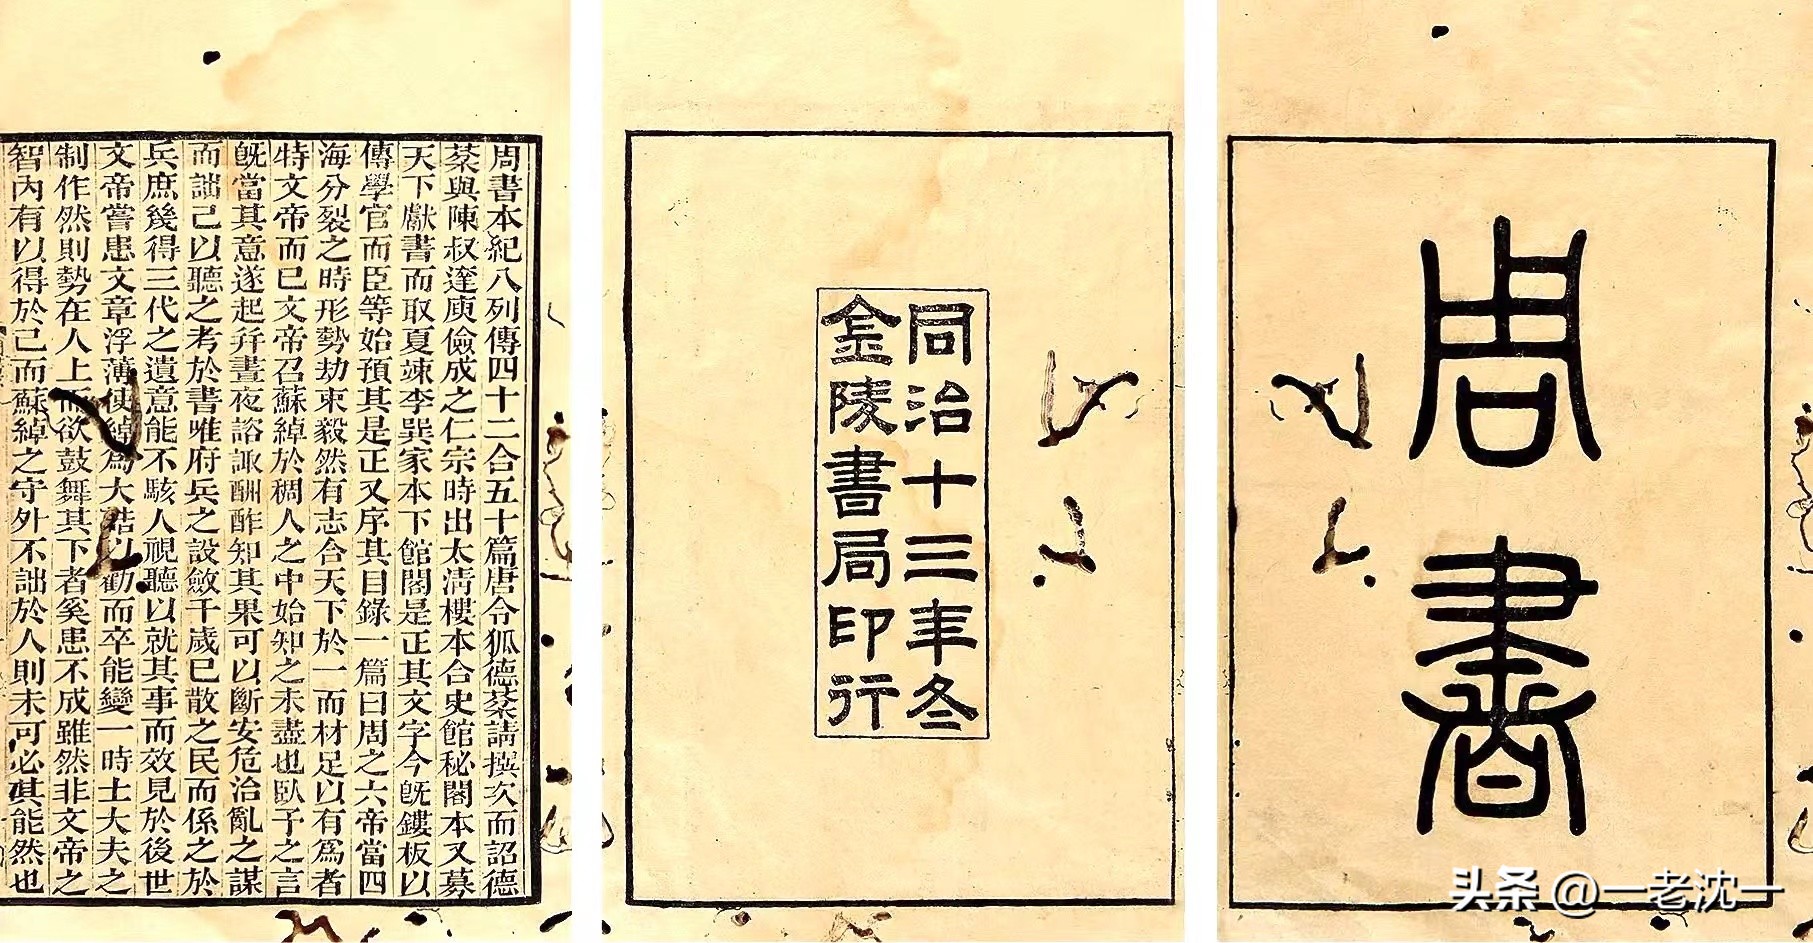 周書
同治十三年冬
金陵書局印行
周書本紀八列傳四十二合五十篇唐令狐德棻請撰次而詔德
棻與陳叔達庾儉成之仁宗時出太清樓本合史館秘閣本又募
天下獻書而取夏竦李巽家本下館閣是正其文字今旣鏤板以
傳學官而臣等始預其是正又序其目錄一篇曰周之六帝當四
海分裂之時形勢劫束毅然有志合天下於一而材足以有爲者
特文帝而已文帝召蘇綽於稠人之中始知之未盡也臥予之言
旣當其意遂起幷晝夜諮諏酬酢知其果可以斷安危治亂之謀
而詘己以聽之考於書唯府兵之設斂千歲已散之民而係之於
兵庶幾得三代之遺意能不駭人視聽以就其事而效見於後世
文帝嘗患文章浮薄使綽爲大誥以勸而卒能變一時士大夫之
制作然則勢在人上而欲鼓舞其下者奚患不成雖然非文帝之
智內有以得於己而蘇綽之守外不詘於人則未可必其能然也
头条 @一老沈一